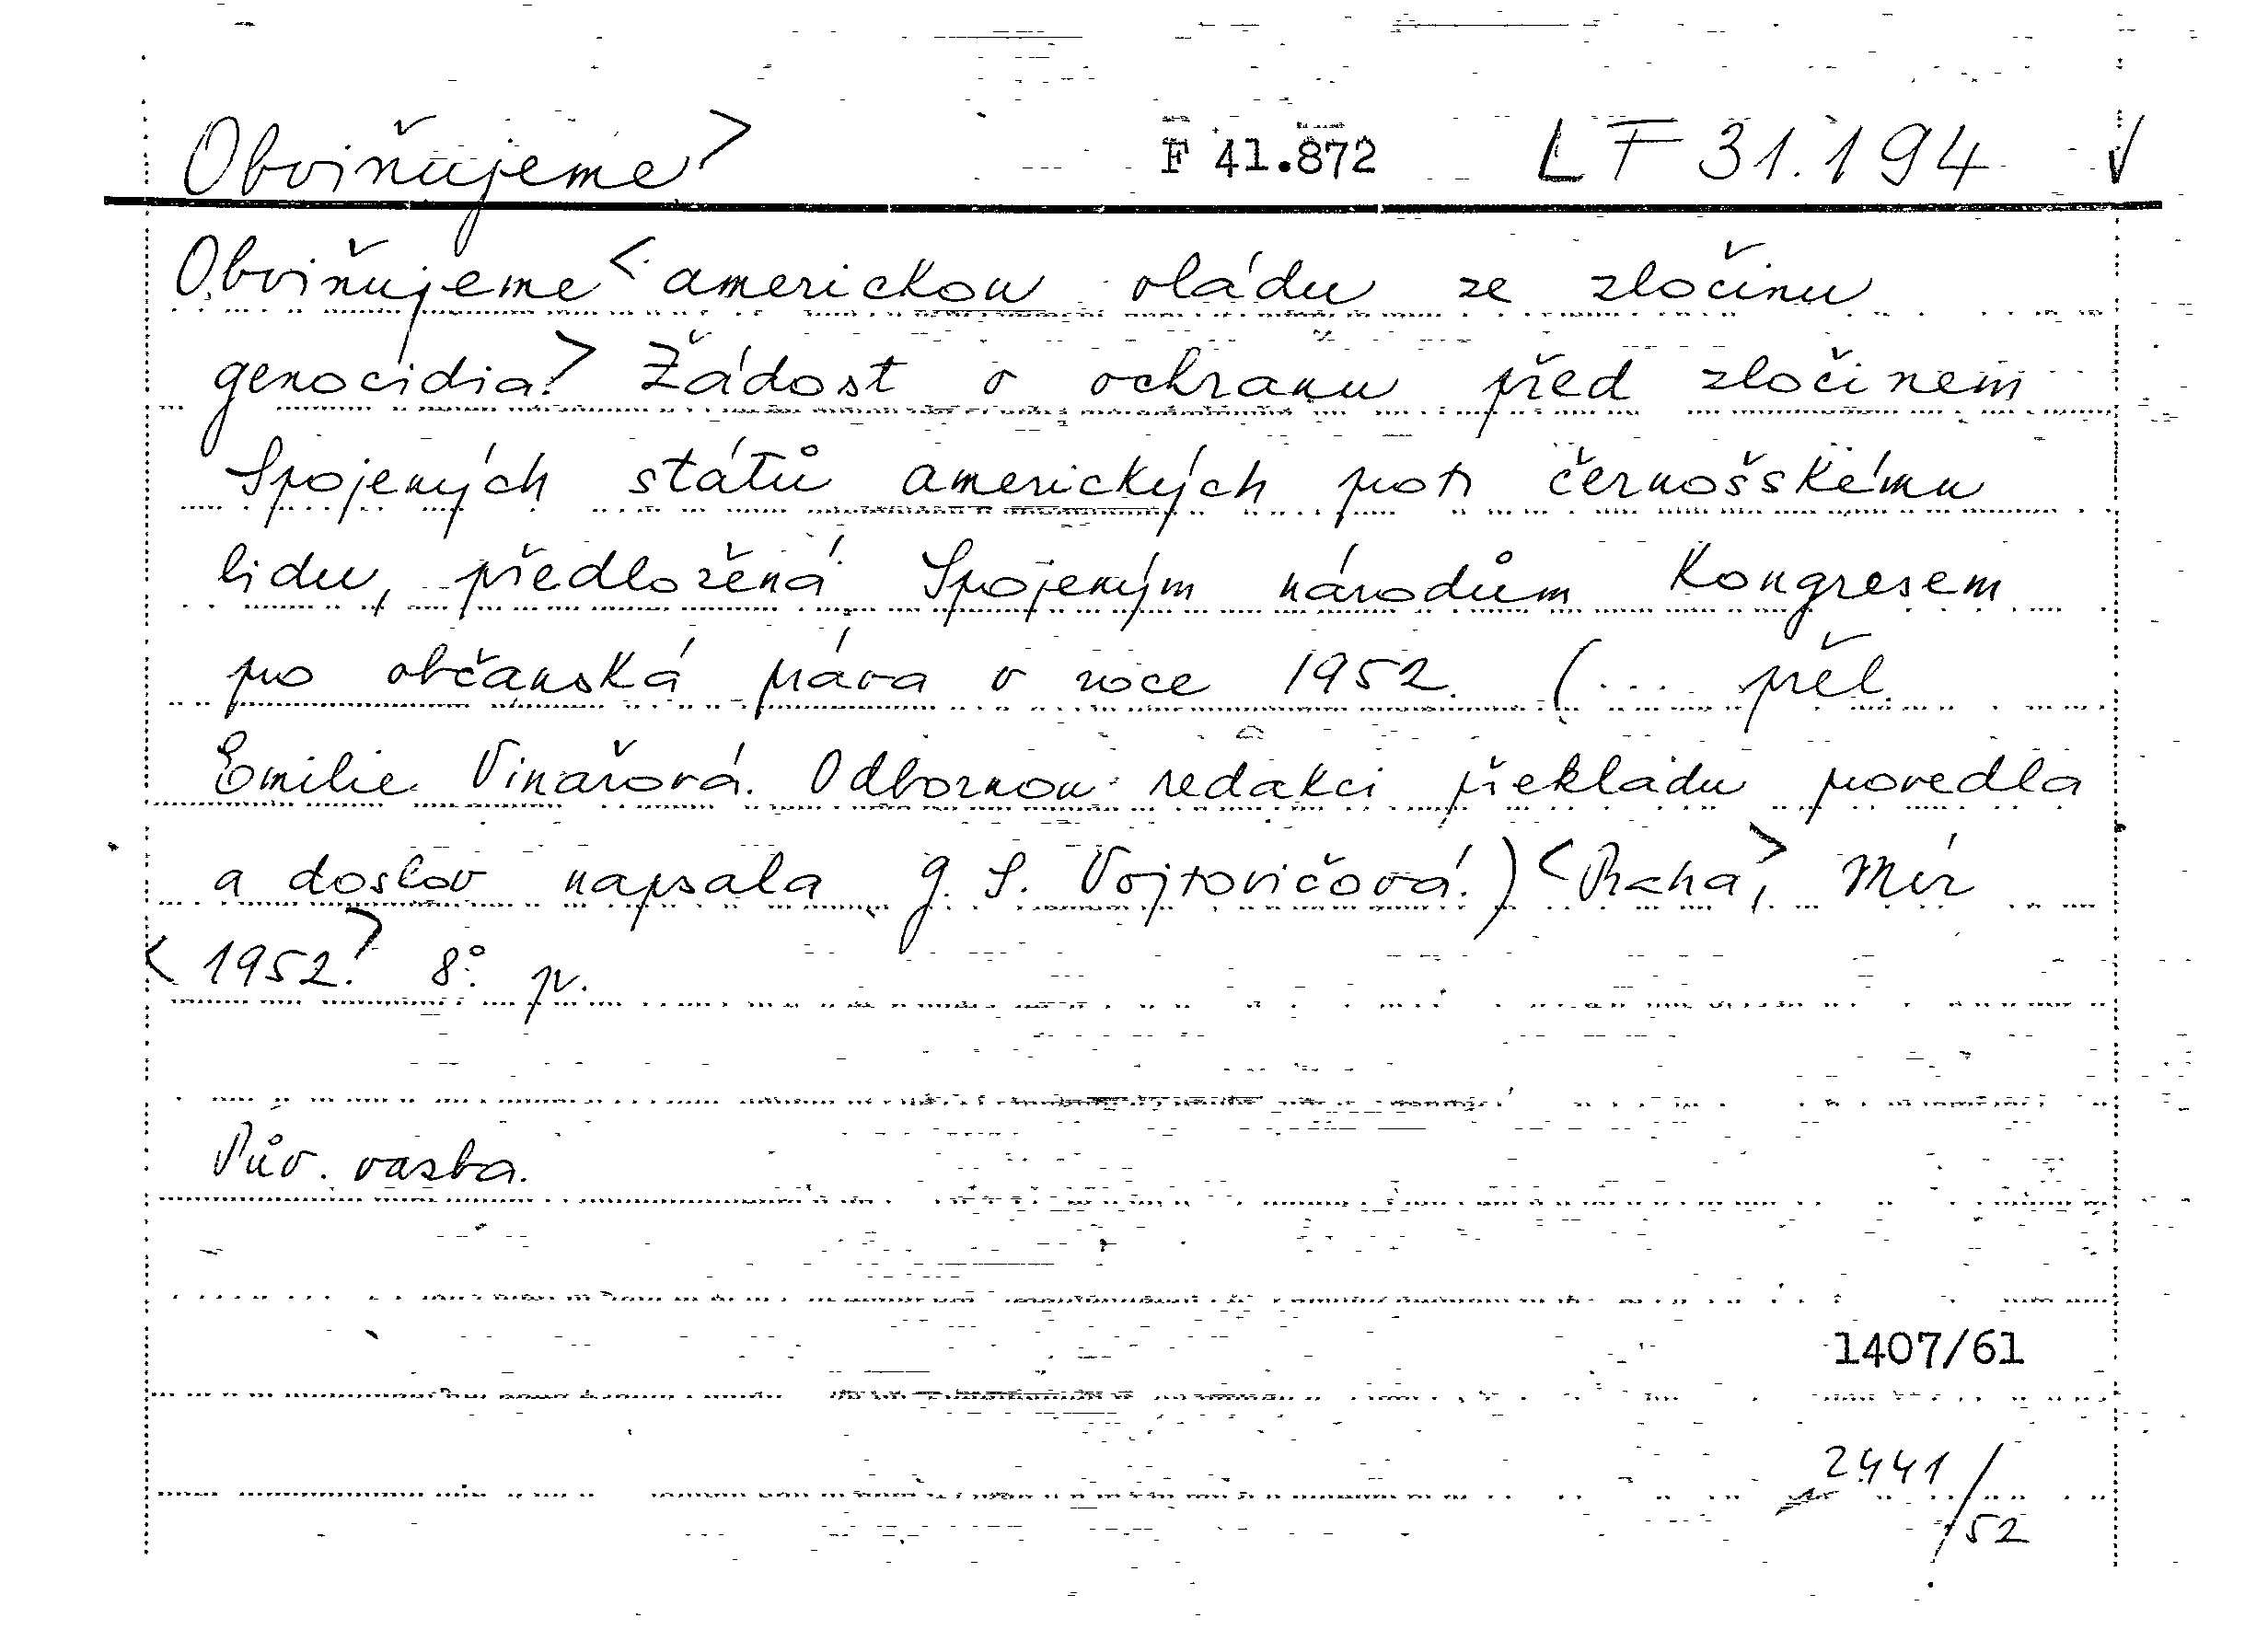 Obviňujeme> F 41.872 LF 31.194 √
Obviňujeme <americkou vládu ze zločinu
genocidia.> Žádost o ochranu před zločinem
Spojených států amerických proti černošskému
lidu, předložená Spojeným národům Kongresem
pro občanská práva v roce 1952. (... přel.
Emilie Vinařová. Odbornou redakci překladu provedla
a doslov napsala G. S. Vojtovičová.) <Praha>, Mír
<1952.> 8°. pv.
Pův. vazba.
1407/61
2441/52